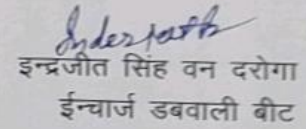 इन्द्रजीत सिंह वन दरोगा
ईन्चार्ज डबवाली बीट